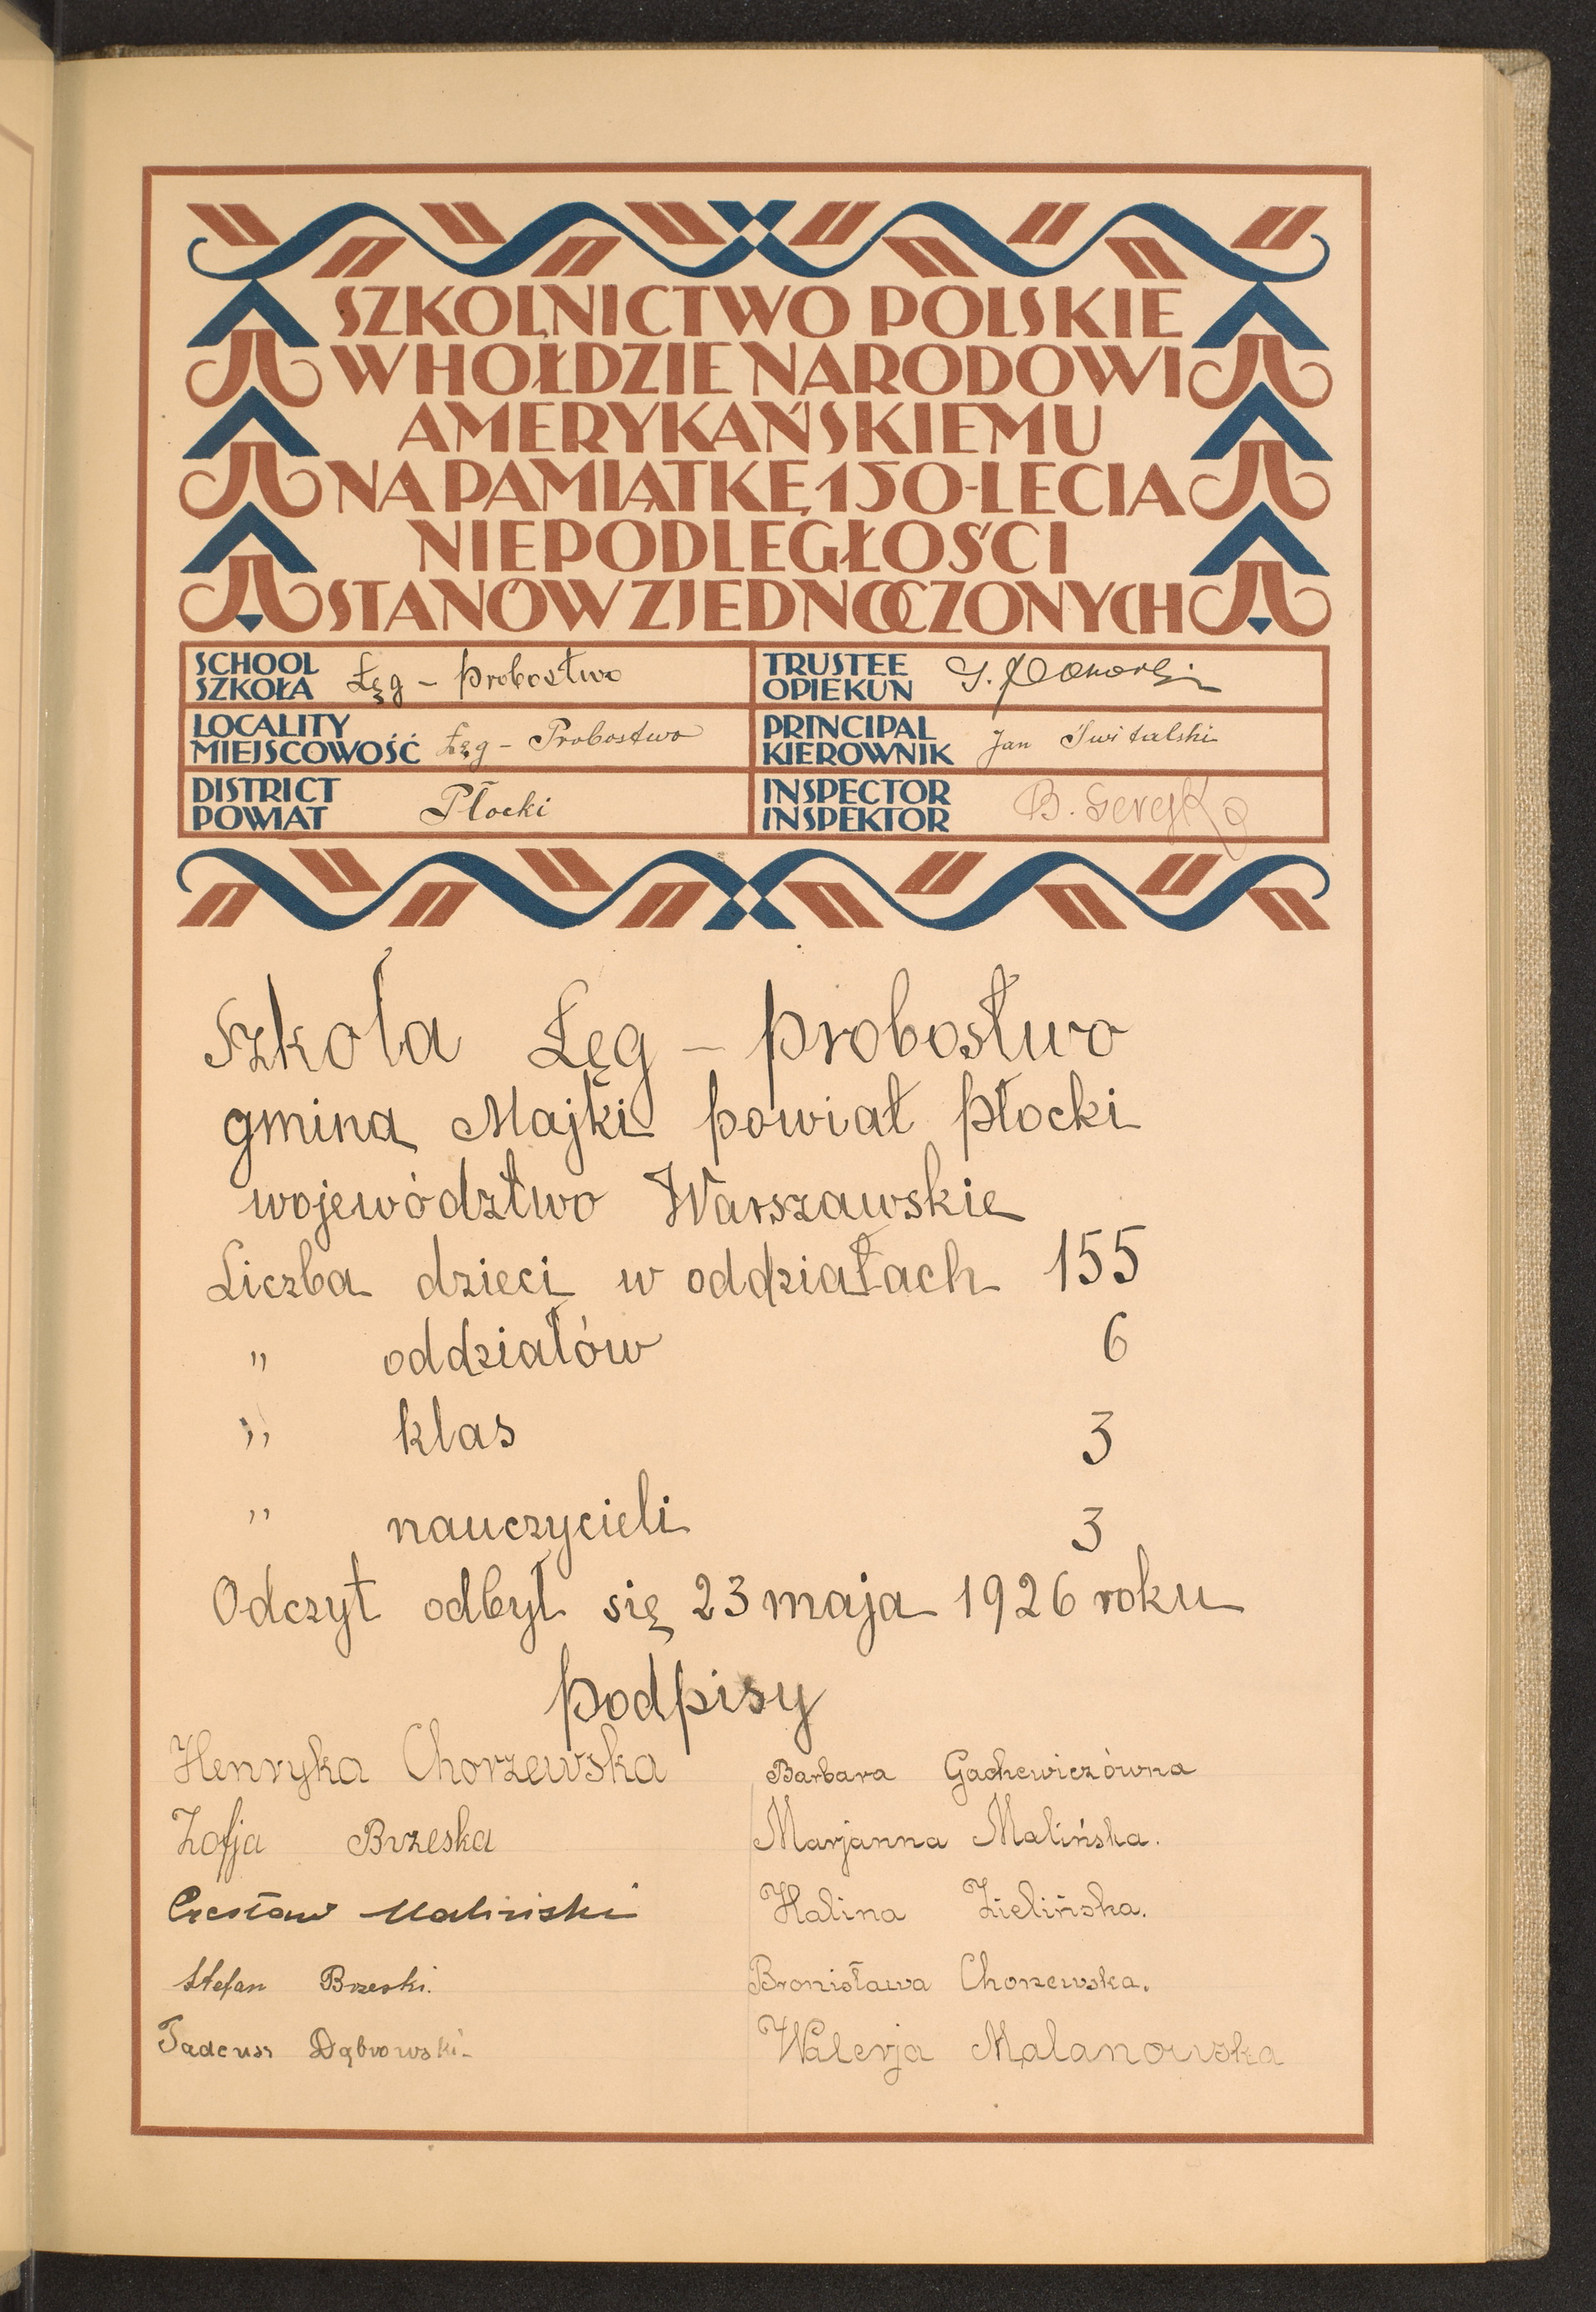 SZKOLNICTWO POLSKIE
W HOŁDZIE NARODOWI
AMERYKAŃSKIEMU
NA PAMIĄTKĘ 150-LECIA
NIEPODLEGŁOŚCI
STANÓW ZJEDNOCZONYCH
SCHOOL
SZKOŁA Łęg - Probostwo
TRUSTEE
OPIEKUN
LOCALITY
MIEJSCOWOŚĆ Łęg - Probostwo
PRINCIPAL
KIEROWNIK Jan Świtalski
DISTRICT
POWIAT Płocki
INSPECTOR
INSPEKTOR B.
Szkoła Łęg - Probostwo
gmina Majki powiat płocki
województwo Warszawskie
Liczba dzieci w oddziałach 155
" oddziałów 6
" klas 3
" nauczycieli 3
Odczyt odbył się 23 maja 1926 roku
Podpisy
Henryka Chorzewska
Zofja Brzeska
Czesław Maliński
Stefan Brzeski.
Tadeusz Dąbrowski-
Barbara Gackewiczówna
Marjanna Malińska.
Halina Zielińska.
Bronisława Chorzewska.
Walerja Malanowska